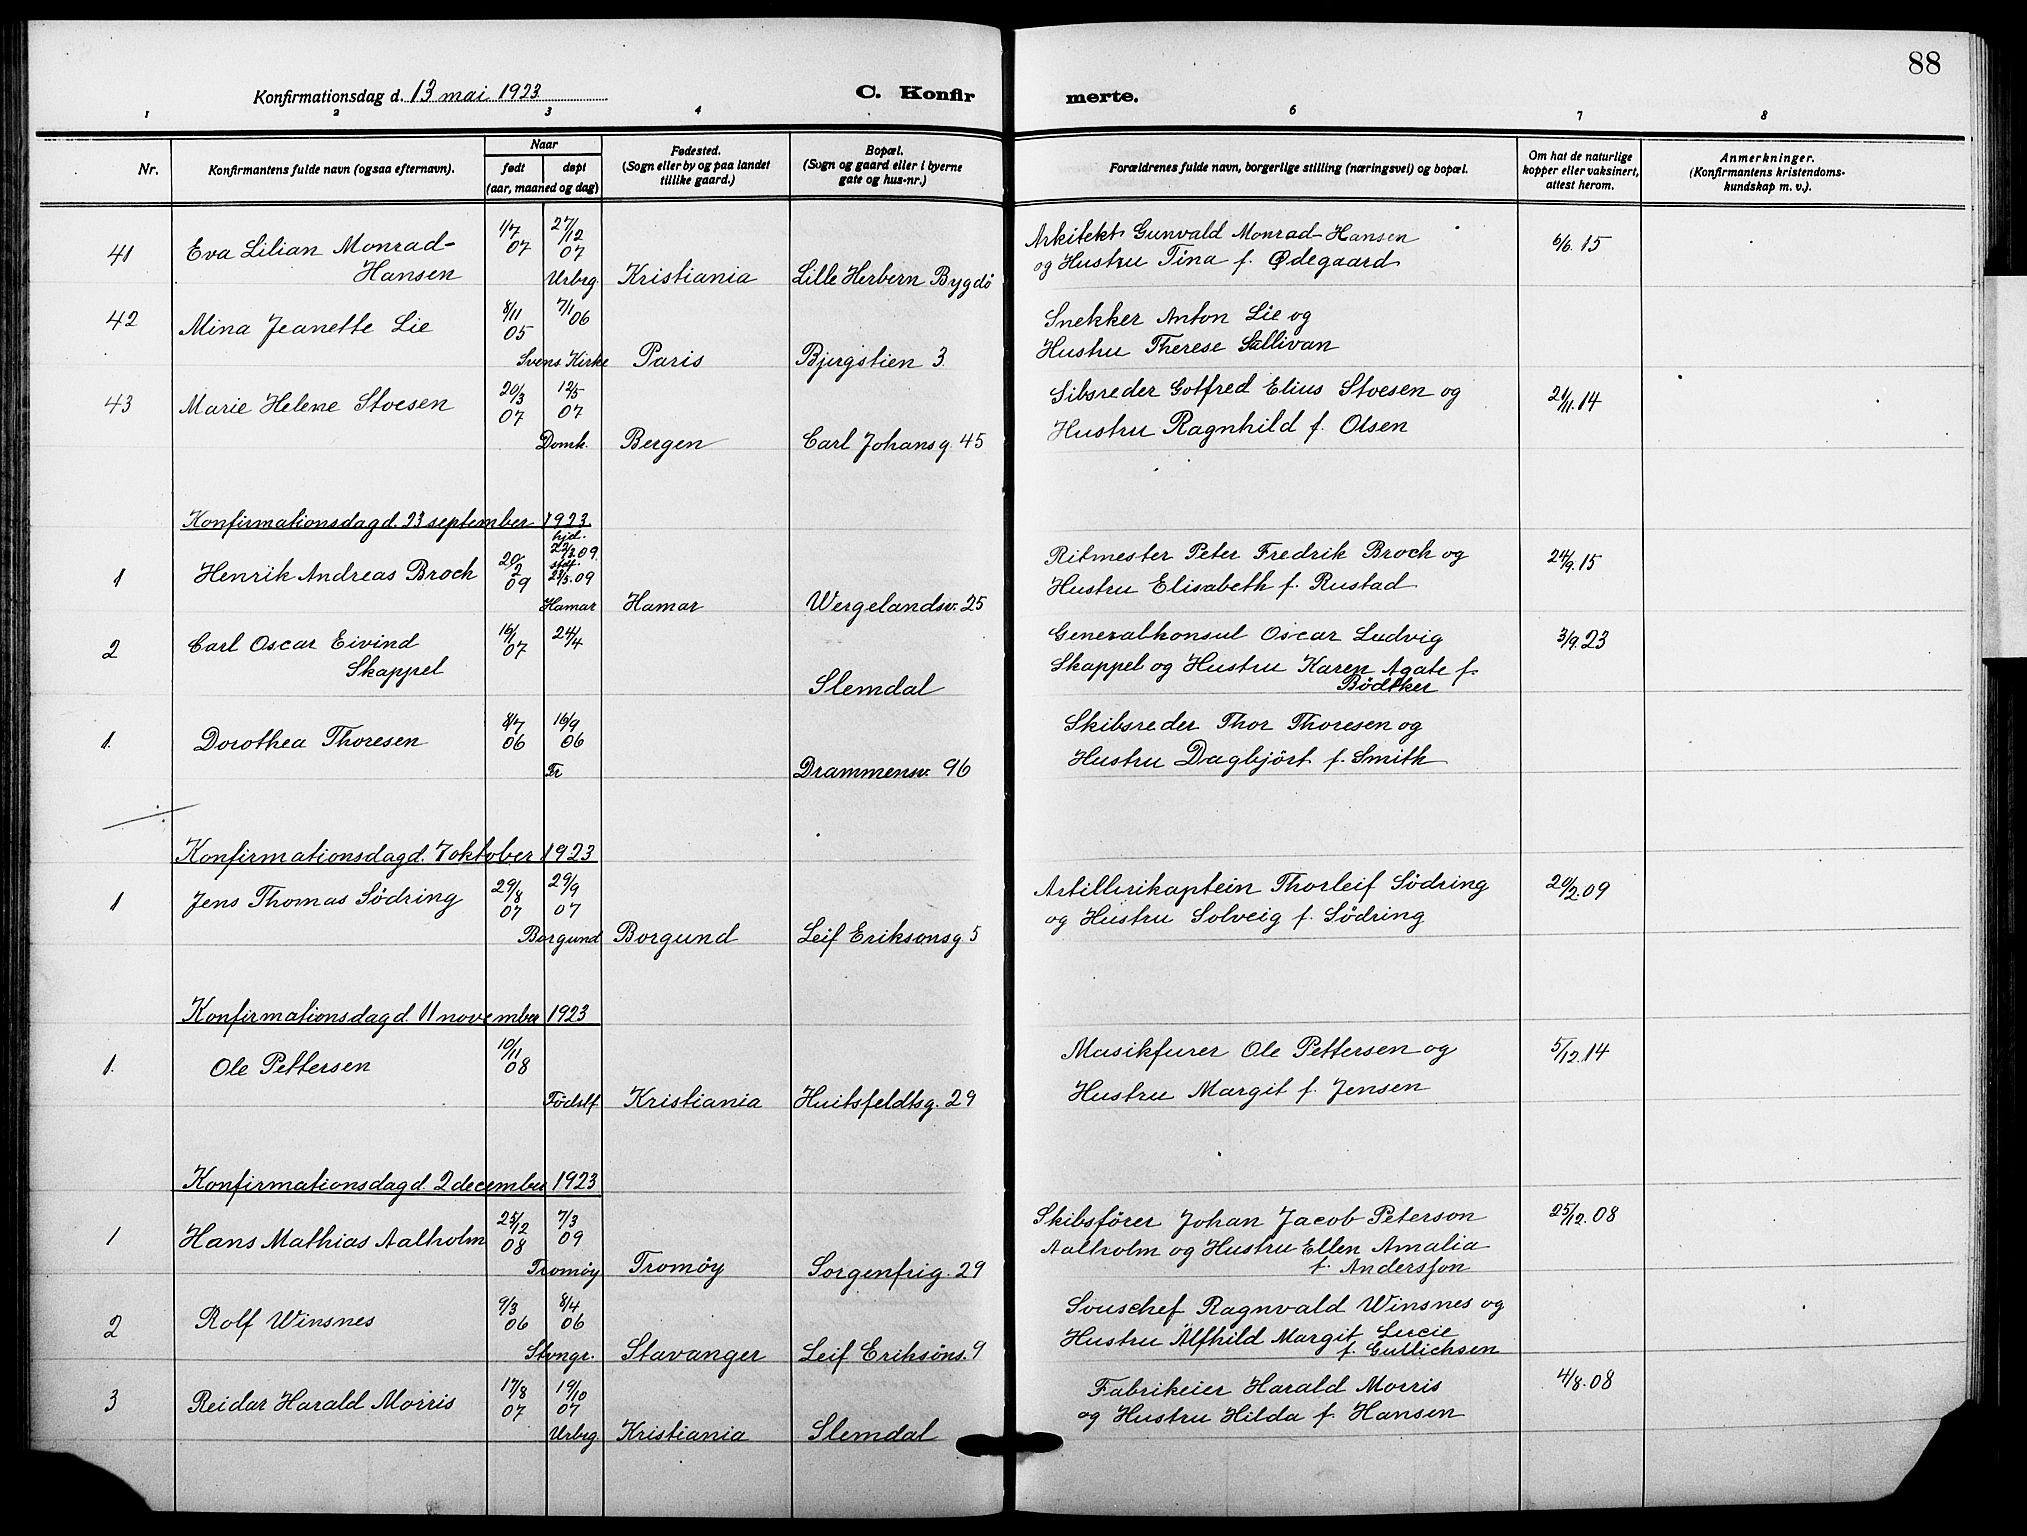 88
Konfirmationsdag d. 13 mai 1923
C. Konfirmerte.
1 2 3 4 6 7 8
Nr.
Konfirmantens fulde navn (ogsaa efternavn).
Naar
født døpt
(aar, maaned og dag)
Fødested.
(Sogn eller by og paa landet
tillike gaard.)
Bopæl.
(Sogn og gaard eller i byerne
gate og hus-nr.)
Forældrenes fulde navn, borgerlige stilling (næringsvei) og bopæl.
Om hat de naturlige
kopper eller vaksinert,
attest herom.
Anmerkninger.
(Konfirmantens kristendoms-
kundskap m. v.)
41 Eva Lilian Monrad- 1/7 07 27/12 07 Arkitekt Gunvald Monrad Hansen 6/6.15
Hansen Urbrg. Kristiania Lille Herbern Bygdö og Hustru Tina f. Ødegaard
42 Mina Jeanette Lie 8/11 05 7/1 06 Snekker Anton Lie og
Svens. Kirke Paris Bjergstien 3. Hustru Therese Sullivan
43 Marie Helene Stoesen 20/3 07 12/5 07 Sibsreder Gotfred Elius Stoesen og 21/11.14
Domk. Bergen Carl Johansg. 45 Hustru Ragnhild f. Olsen
Konfirmationsdag d. 23 september 1923.
1 Henrik Andreas Broch 20/2 09 hjd. 22/2 09. stad. 23/5.09 Ritmester Peter Fredrik Broch og 24/9.15
Hamar Hamar Wergelandsv. 25 Hustru Elisabeth f. Rustad
2 Carl Oscar Eivind 16/1 07 24/4 Generalkonsul Oscar Ludvig 3/9.23
Skappel Slemdal Skappel og Hustru Karen Agate f.
Bödtker
1. Dorothea Thoresen 8/7 06 16/9 06 Skibsreder Thor Thoresen og
Tr Drammensv. 96 Hustru Dagbjört f. Smith
Konfirmationsdag d. 7 oktober 1923
1 Jens Thomas Södring 29/8 07 29/9 07 Artillerikaptein Thorleif Södring 20/2.09
Borgund Borgund Leif Eriksonsg 5 og Hustru Solveig f. Södring
Konfirmationsdag d. 11 november 1923
1. Ole Pettersen 10/11 08 Musikfurer Ole Pettersen og 5/12.14
Födslf Kristiania Huitsfeldtsg. 29 Hustru Margit f. Jensen
Konfirmationsdag d. 2 december 1923
1 Hans Mathias Aalholm 25/12 08 7/3 09 Skibsförer Johan Jacob Peterson 25/12.08
Tromöy Tromöy Sorgenfrig. 29 Aalholm og Hustru Ellen Amalia
f. Andersson
2 Rolf Winsnes 9/3 06 8/4 06 Souschef Ragnvald Winsnes og
Stvngr. Stavanger Leif Eriksöns. 9 Hustru Alfhild Margit Lucie
f. Gullichsen
3 Reidar Harald Morris 17/8 07 19/10 07 Fabrikeier Harald Morris 4/8.08
Urbrg. Kristiania Slemdal og Hustru Hilda f. Hansen